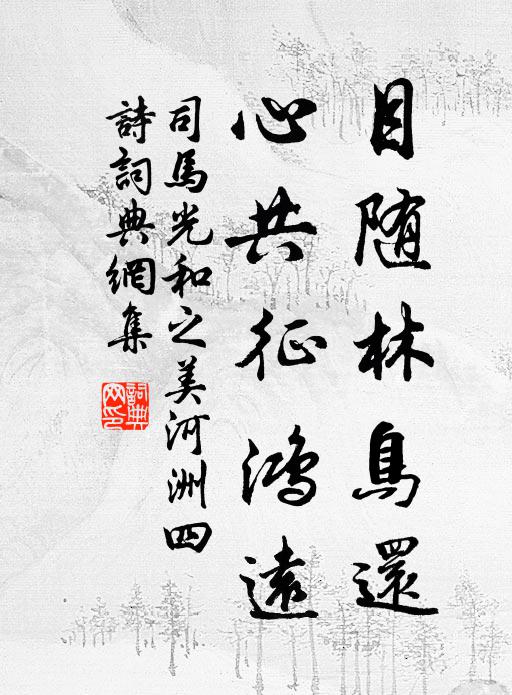 目随林鳥還
心共征鴻遠
司馬光和之美河洲四
詩詞典網集
詞典网印